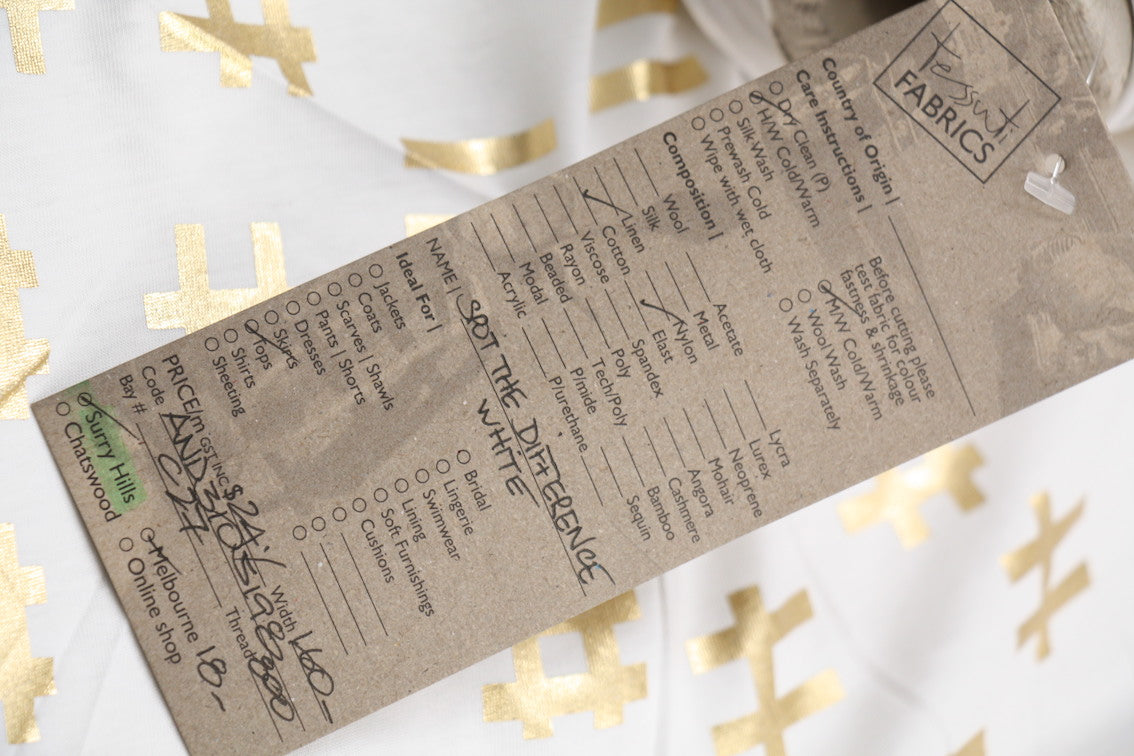 tessuti
FABRICS
Country of Origin |
Care Instructions |
Dry Clean (P)
H/W Cold/Warm
Silk Wash
Prewash Cold
Wipe with wet cloth
Before cutting please
test fabric for colour
fastness & shrinkage
M/W Cold/Warm
Wool Wash
Wash Separately
Composition |
Wool
Silk
Linen
Cotton
Viscose
Rayon
Beaded
Modal
Acrylic
Acetate
Metal
Nylon
Elast
Spandex
Poly
Tech/Poly
P/mide
P/urethane
Lycra
Lurex
Neoprene
Mohair
Angora
Cashmere
Bamboo
Sequin
NAME | SPOT THE DIFFERENCE
WHITE
Ideal For |
Jackets
Coats
Scarves | Shawls
Pants | Shorts
Dresses
Skirts
Tops
Shirts
Sheeting
Bridal
Lingerie
Swimwear
Lining
Soft Furnishings
Cushions
PRICE/m GST INC $24.- Width 160-
Code
Thread 800
Bay # C27
Surry Hills
Chatswood
Melbourne 18-
Online shop